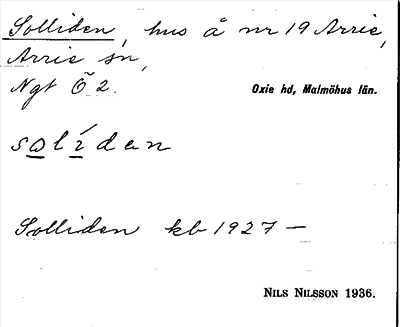 Solliden, hus å nr 19 Arrie,
Arrie sn,
Ngt Ö 2.
Oxie hd, Malmöhus län.
solíden
Solliden kb 1927 —
NILS NILSSON 1936.